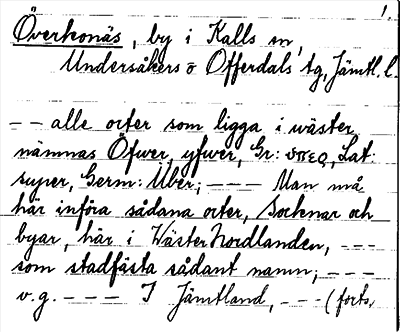 1.
Överkonäs, by i Kalls sn,
Undersåkers o Offerdals tg, Jämtl. l.
-- alle orter som ligga i wäster
nämnas Öfwer, yfwer, Gr: ὑπερ, Lat:
super, Germ: Über; --- Man må
här införa sådana orter, Socknar och
byar, här i Wäster Nordlanden, ---
som stadfästa sådant namn; ---
v.g. --- I Jämtland, --- (forts.